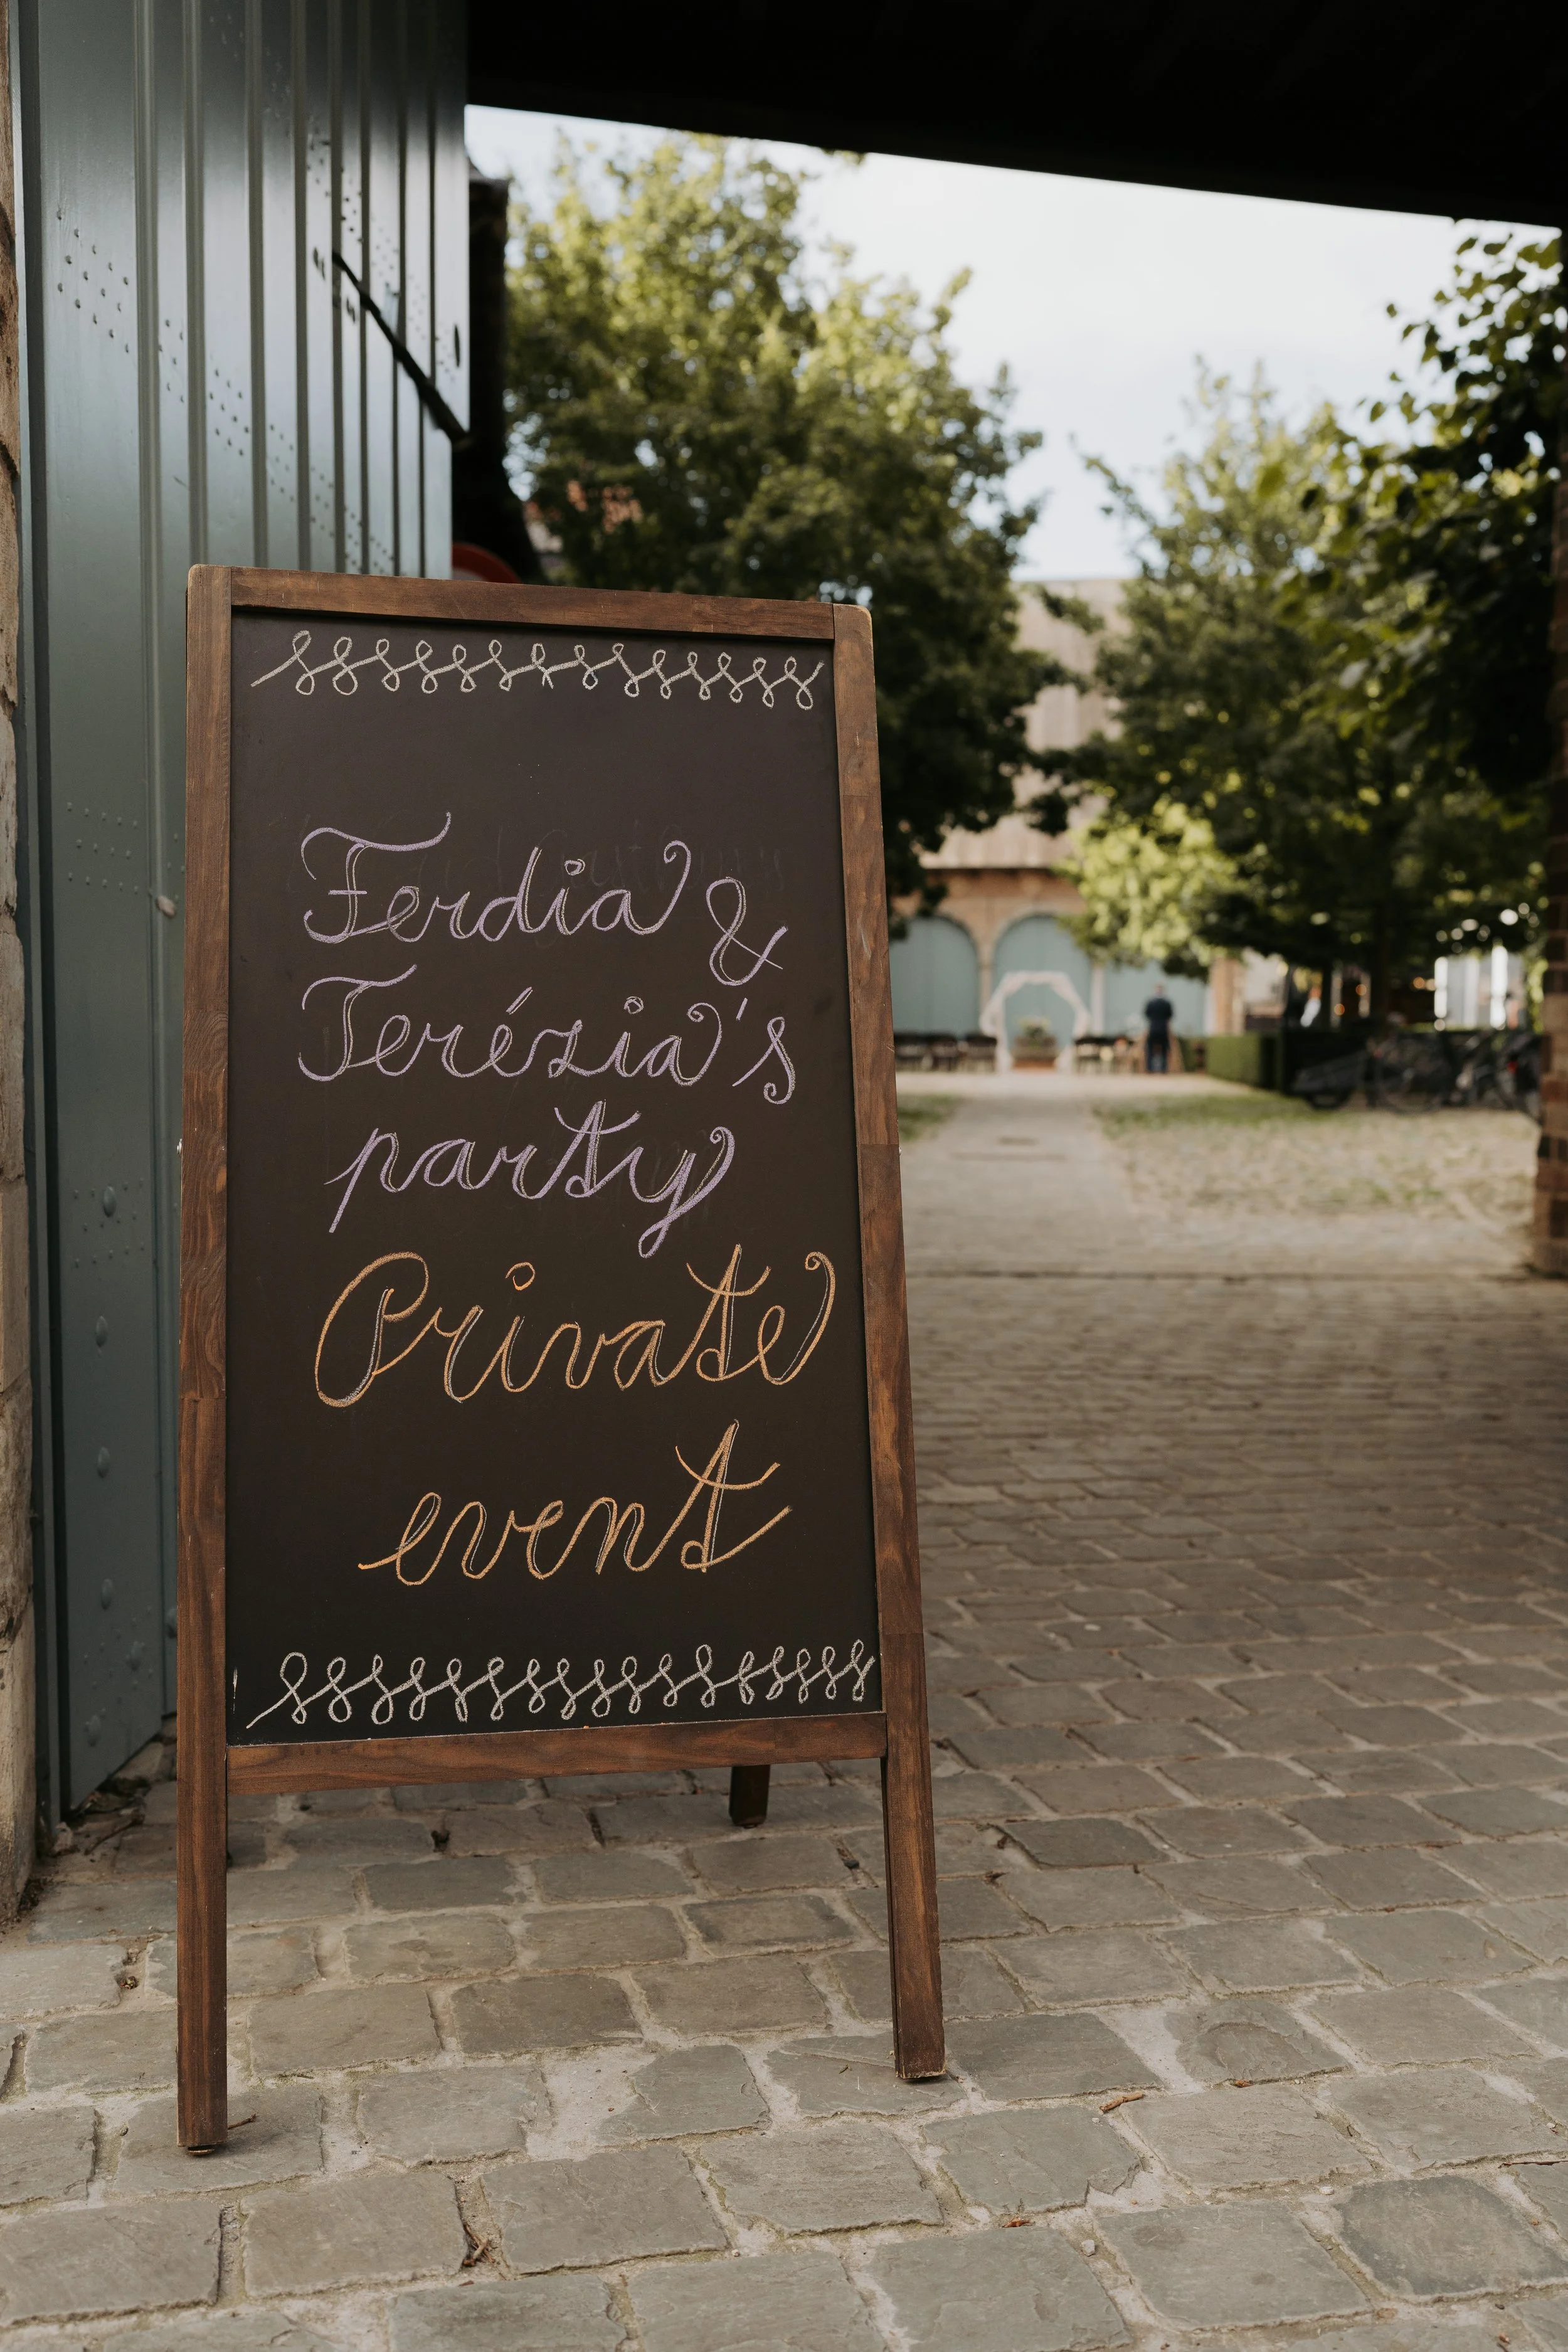 Ferdia &
Terézia's
party
Private
event